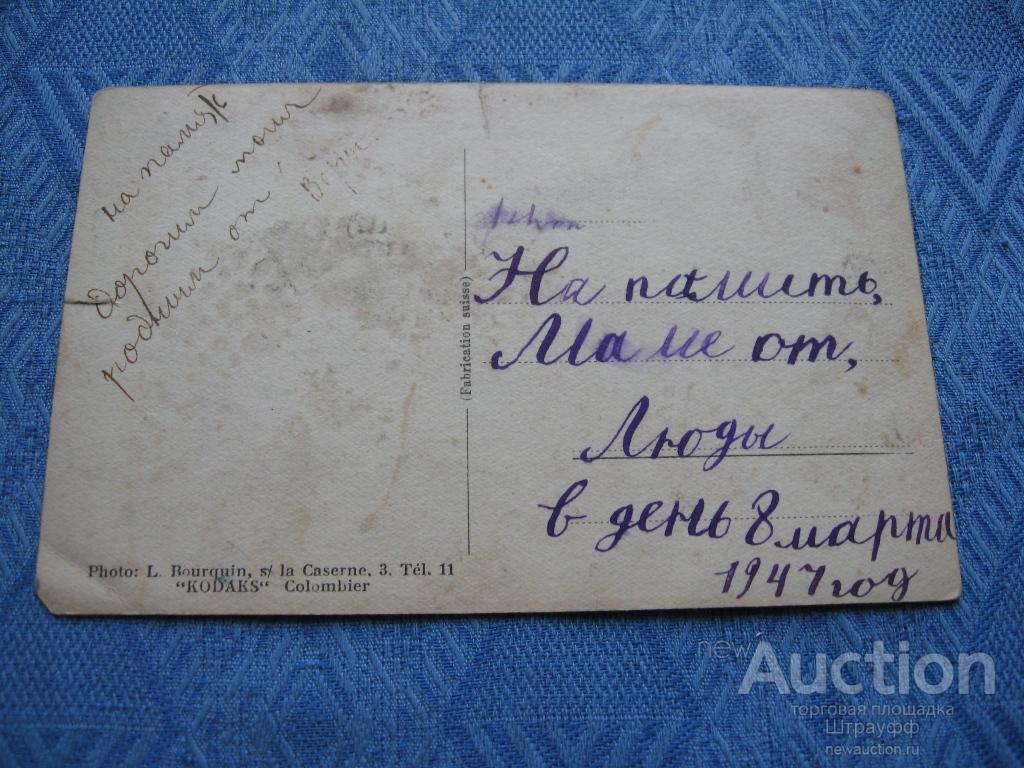 на память
дорогим моим
родным от
На памить,
Маме от,
Люды
в день 8 марта
1947 год
(Fabrication suisse)
Photo: L. Bourquin, s/ la Caserne, 3. Tél. 11
“KODAKS“ Colombier
newAuction
торговая площадка
Штрауфф
newauction.ru